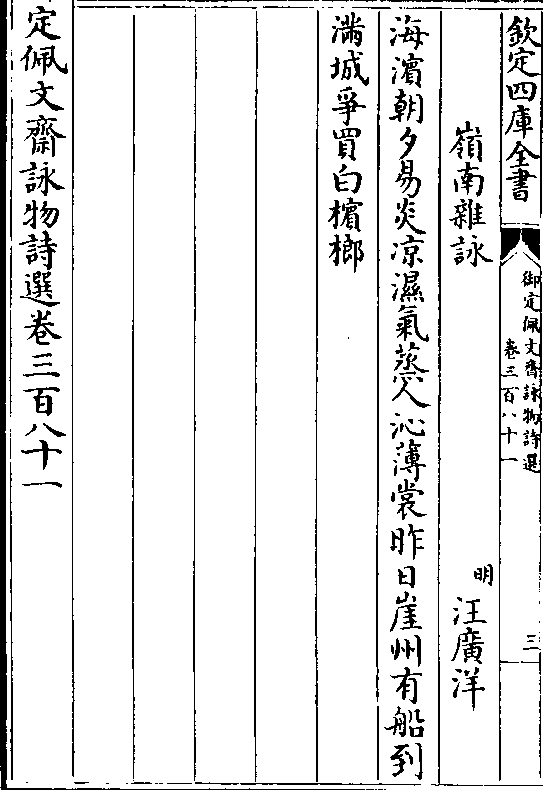 欽定四庫全書
御定佩文齋詠物詩選
卷三百八十一
三
嶺南雜詠
明
汪廣洋
海濱朝夕易炎凉濕氣蒸人沁薄裳昨日崖州有船到
滿城爭買白檳榔
定佩文齋詠物詩選卷三百八十一